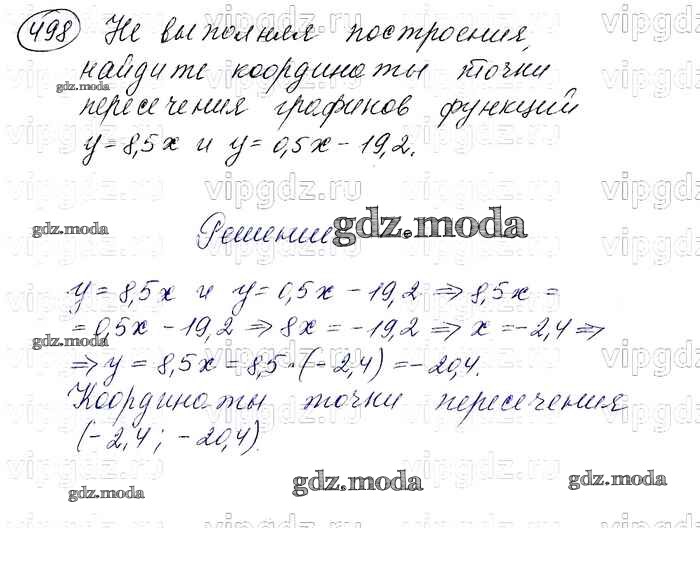 498 Не выполняя построения,
найдите координаты точки
gdz.moda
пересечения графиков функций
y=8,5x и y=0,5x-19,2.
vipgdz.ru vipgdz.ru vipgdz.ru vipgdz
gdz.moda Решение gdz.moda
y=8,5x и y=0,5x-19,2 ⇒ 8,5x=
=0,5x-19,2 ⇒ 8x=-19,2 ⇒ x=-2,4 ⇒
gdz.moda
⇒ y=8,5x=8,5·(-2,4)=-20,4.
Координаты точки пересечения
(-2,4; -20,4).
gdz.moda gdz.moda gdz.moda
vipgdz.ru vipgdz.ru vipgdz.ru vipgdz